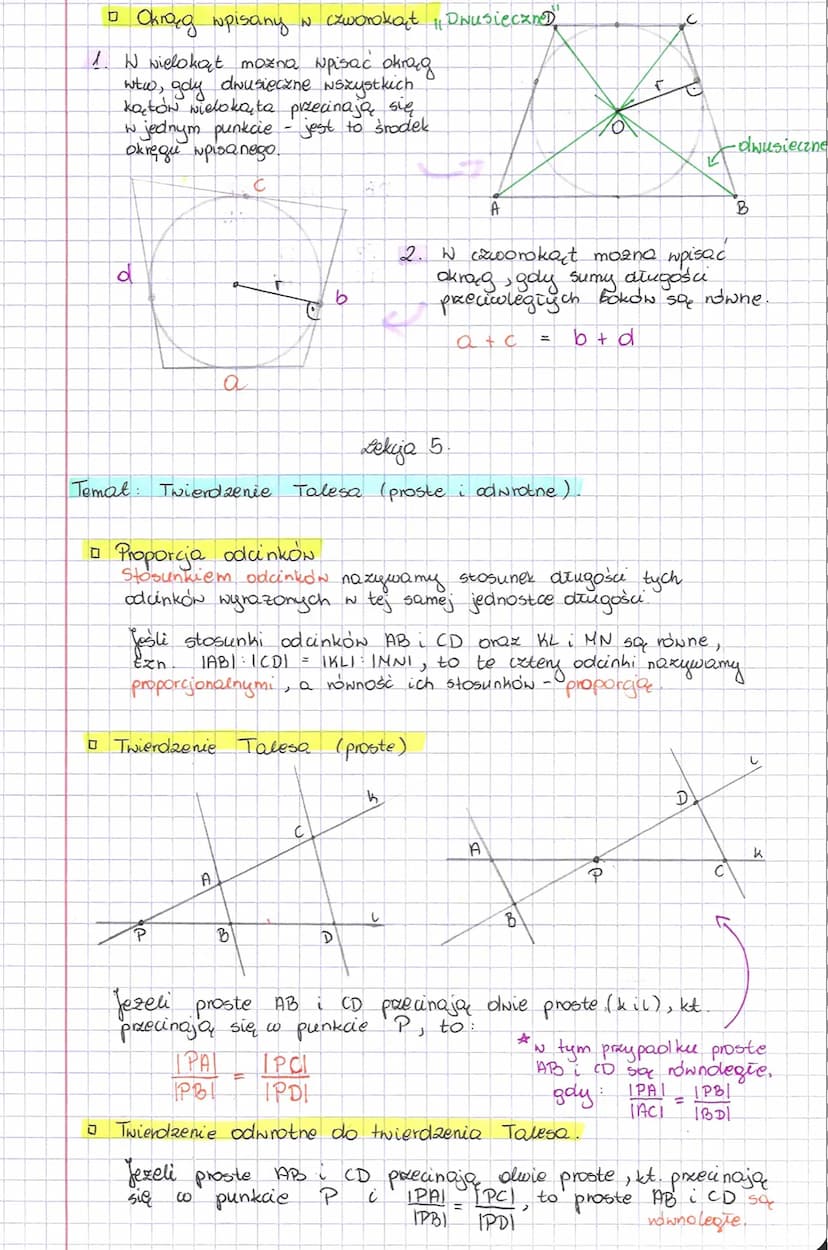 Okrąg wpisany w czworokąt „Dwusieczne
1. W wielokąt można wpisać okrąg
wtw, gdy dwusieczne wszystkich
kątów wielokąta przecinają się
w jednym punkcie - jest to środek
okręgu wpisanego.
D
C
r
O
dwusieczne
A
B
c
d
r
b
a
2. W czworokąt można wpisać
okrąg, gdy sumy długości
przeciwległych boków są równe.
a + c = b + d
Lekcja 5.
Temat: Twierdzenie Talesa (proste i odwrotne).
Proporcja odcinków
Stosunkiem odcinków nazywamy stosunek długości tych
odcinków wyrażonych w tej samej jednostce długości.
Jeśli stosunki odcinków AB i CD oraz KL i MN są równe,
tzn. |AB| : |CD| = |KL| : |MN|, to te cztery odcinki nazywamy
proporcjonalnymi, a równość ich stosunków - proporcją.
Twierdzenie Talesa (proste)
k
C
A
L
P
B
D
L
D
A
k
P
C
B
Jeżeli proste AB i CD przecinają dwie proste (k i L), kt.
przecinają się w punkcie P, to:
|PA| / |PB| = |PC| / |PD|
* w tym przypadku proste
AB i CD są równoległe,
gdy: |PA| / |AC| = |PB| / |BD|
Twierdzenie odwrotne do twierdzenia Talesa.
Jeżeli proste AB i CD przecinają dwie proste, kt. przecinają
się w punkcie P i |PA| / |PB| = |PC| / |PD|, to proste AB i CD są
równoległe.